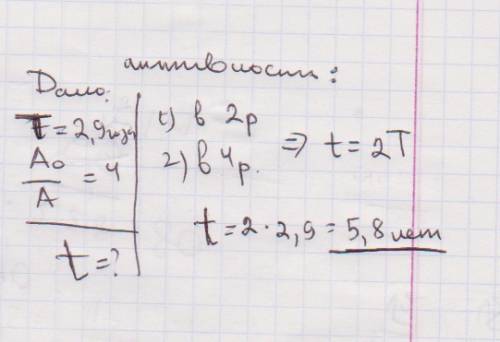 активность:
Дано:
T = 2,9 года
A₀/A = 4
t = ?
1) в 2р
2) в 4р.
⇒ t = 2T
t = 2 · 2,9 = 5,8 лет